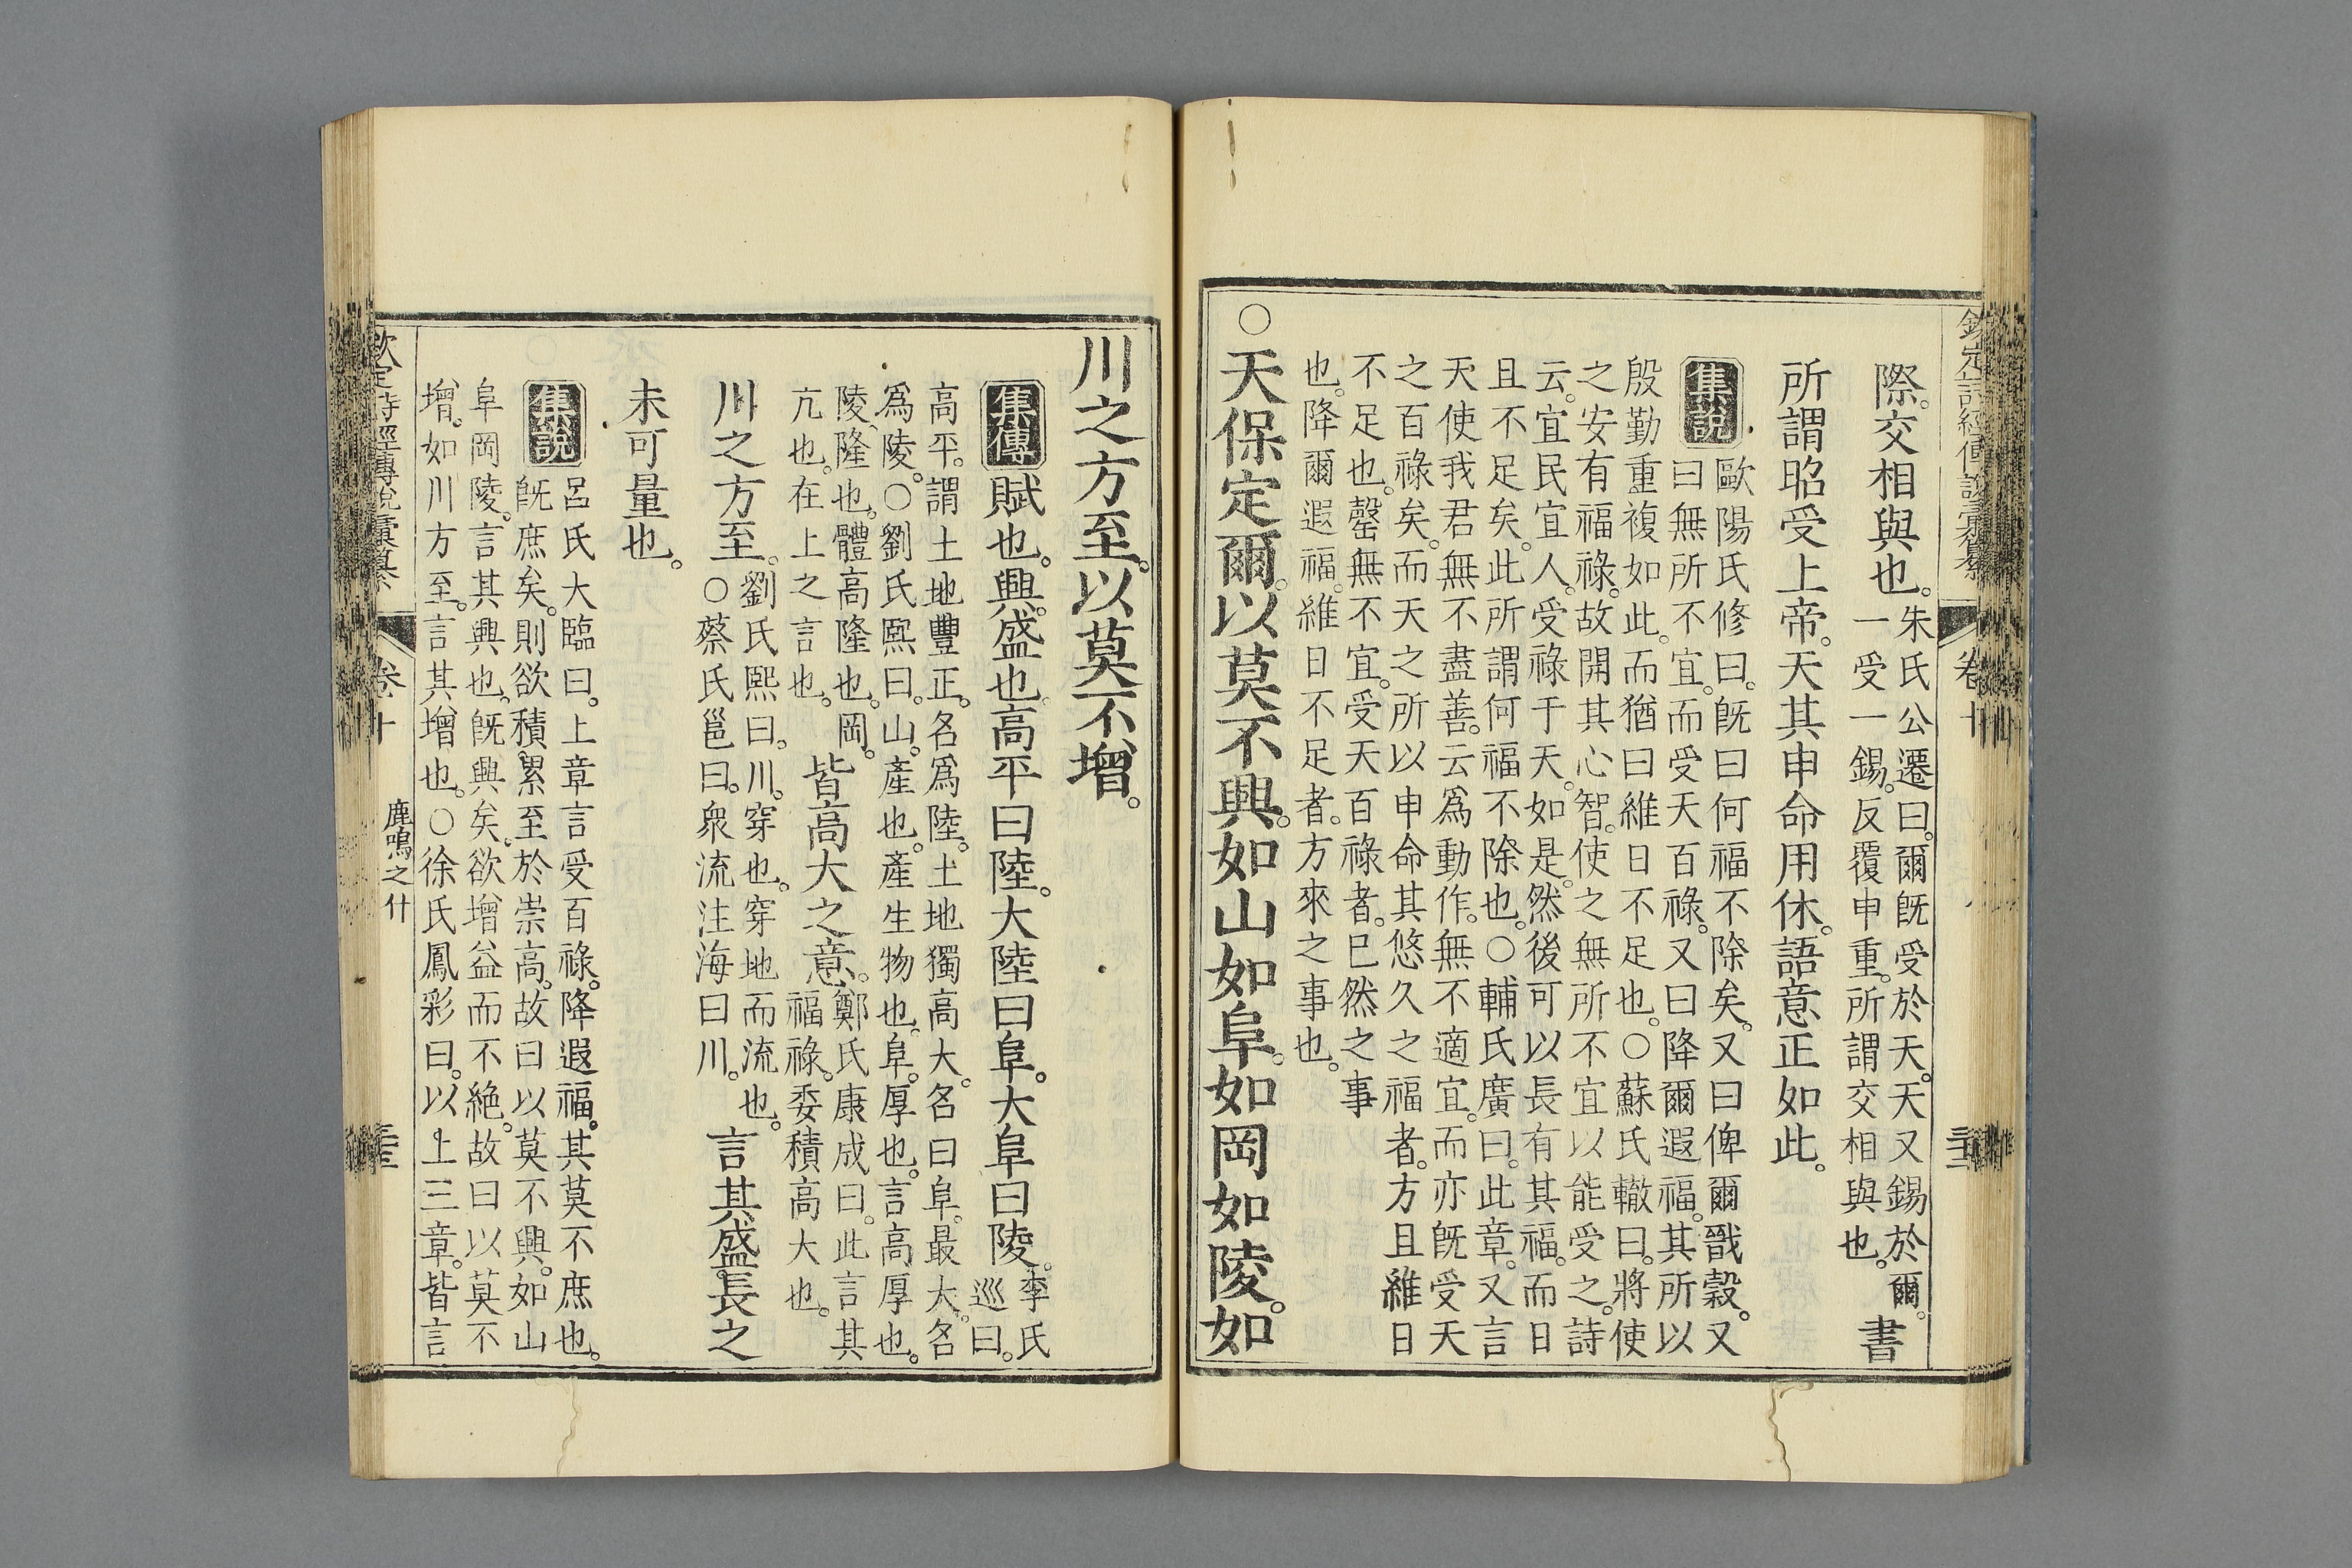 欽定詩經傳說彙纂
卷十
際。交相與也。朱氏公遷曰。爾旣受於天。天又錫於爾。
一受一錫。反覆申重。所謂交相與也。書
所謂昭受上帝。天其申命用休。語意正如此。
集說
歐陽氏修曰。旣曰何福不除矣。又曰俾爾戩穀。又
曰無所不宜。而受天百祿。又曰降爾遐福。其所以
殷勤重複如此。而猶曰維日不足也。○蘇氏轍曰。將使
之安有福祿。故開其心智。使之無所不宜以能受之。詩
云。宜民宜人。受祿于天。如是。然後可以長有其福。而日
且不足矣。此所謂何福不除也。○輔氏廣曰。此章。又言
天使我君無不盡善。云爲動作。無不適宜。而亦旣受天
之百祿矣。而天之所以申命其悠久之福者。方且維日
不足也。罄無不宜。受天百祿者。已然之事
也。降爾遐福。維日不足者。方來之事也。
○天保定爾。以莫不興。如山如阜。如岡如陵。如
川之方至。以莫不增。
集傳
賦也。興。盛也。高平曰陸。大陸曰阜。大阜曰陵。李氏
巡曰。
高平。謂土地豐正。名爲陸。土地獨高大。名曰阜。最大。名
爲陵。○劉氏熙曰。山。產也。產生物也。阜。厚也。言高厚也。
陵、隆也。體高隆也。岡。
亢也。在上之言也。皆高大之意。鄭氏康成曰。此言其
福祿。委積高大也。
川之方至。劉氏熙曰。川。穿也。穿地而流也。
○蔡氏邕曰。衆流注海曰川。言其盛長之
未可量也。
集說
呂氏大臨曰。上章言受百祿。降遐福。其莫不庶也。
旣庶矣。則欲積累至於崇高。故曰以莫不興。如山
阜岡陵。言其興也。旣興矣。欲增益而不絕。故曰以莫不
增。如川方至。言其增也。○徐氏鳳彩曰。以上三章。皆言
欽定詩經傳說彙纂
卷十
鹿鳴之什